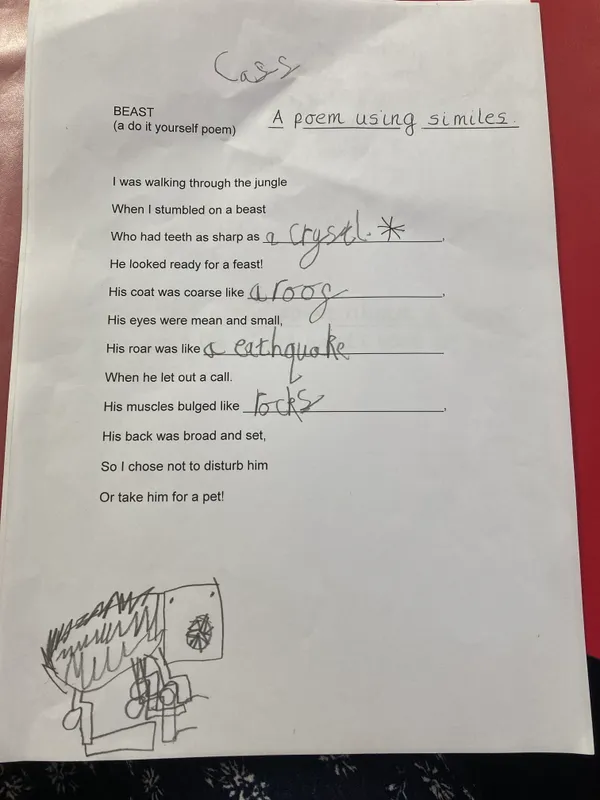 Cass
BEAST
(a do it yourself poem)
A poem using similes.
I was walking through the jungle
When I stumbled on a beast
Who had teeth as sharp as a Crystel.*,
He looked ready for a feast!
His coat was coarse like a roog,
His eyes were mean and small,
His roar was like a eathquake
When he let out a call.
His muscles bulged like rocks,
His back was broad and set,
So I chose not to disturb him
Or take him for a pet!